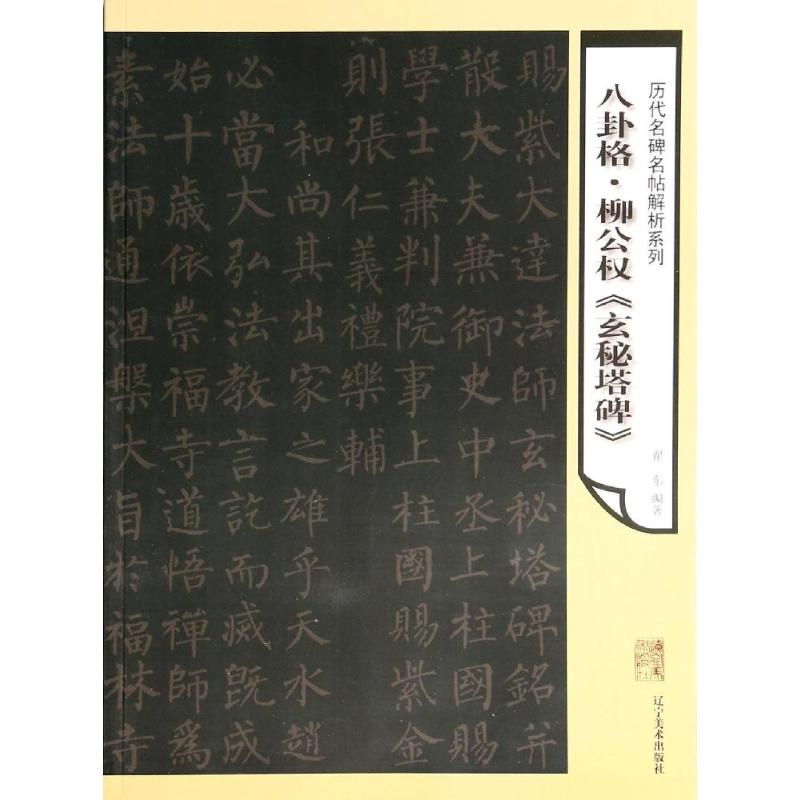 历代名碑名帖解析系列
八卦格·柳公权《玄秘塔碑》
翟东 编著
辽宁美术出版社
賜紫大達法師玄秘塔碑銘并
散大夫兼御史中丞上柱國賜
學士兼判院事上柱國賜紫金
則張仁義禮樂輔
和尚其出家之雄乎天水趙
必當大弘法教言訖而滅既成
始十歲依崇福寺道悟禪師爲
素法師通涅槃大旨於福林寺